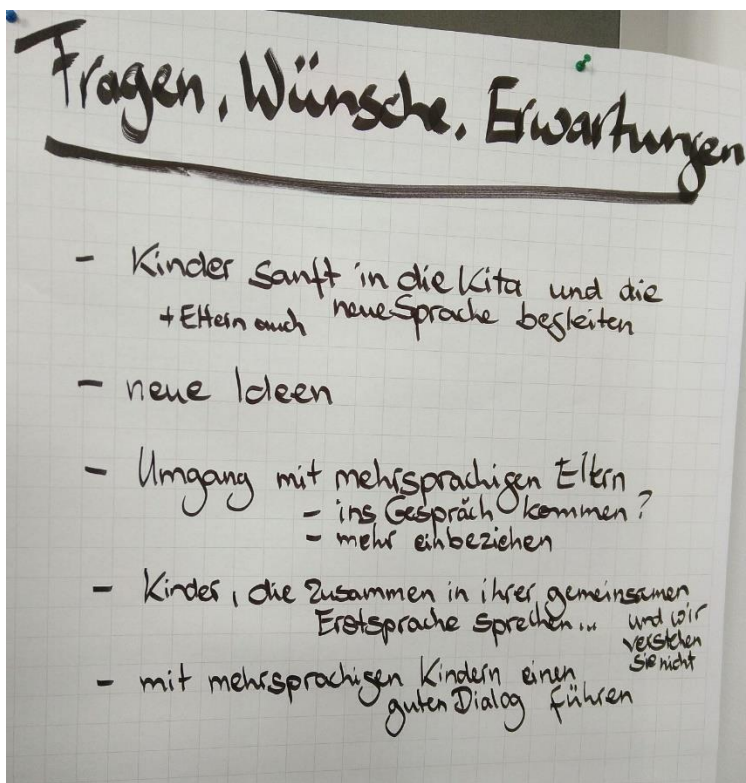 Fragen, Wünsche, Erwartungen
- Kinder sanft in die Kita und die
+ Eltern auch neue Sprache begleiten
- neue Ideen
- Umgang mit mehrsprachigen Eltern
- ins Gespräch kommen?
- mehr einbeziehen
- Kinder, die zusammen in ihrer gemeinsamen
Erstsprache sprechen... und wir
verstehen
sie nicht
- mit mehrsprachigen Kindern einen
guten Dialog führen